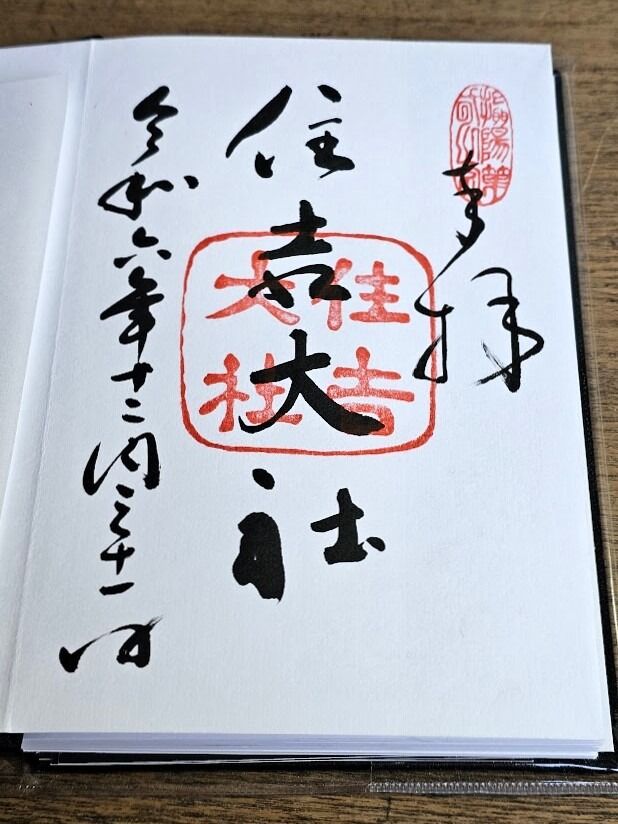 奉拝
住吉大社
住吉
大社
令和六年十二月三十一日